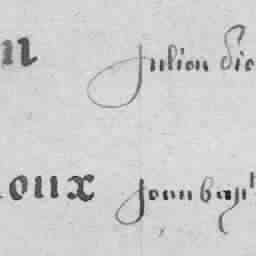 n Julien
oux jean bap^t